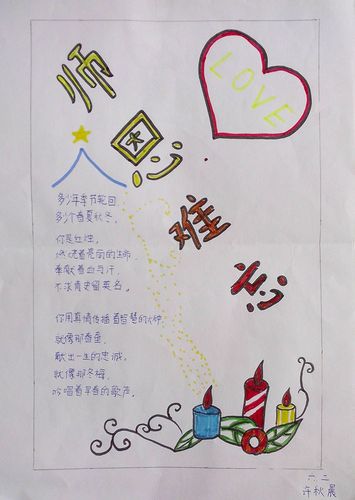 师恩难忘
LOVE
多少年季节轮回,
多少个春夏秋冬,
你是红烛,
燃烧着亮丽的生命,
奉献着血与汗,
不求青史留英名。
你用真情传播着智慧的火种,
就像那春蚕,
献出一生的忠诚,
就像那冬梅,
吟唱着早春的歌声。
六.二
许秋晨